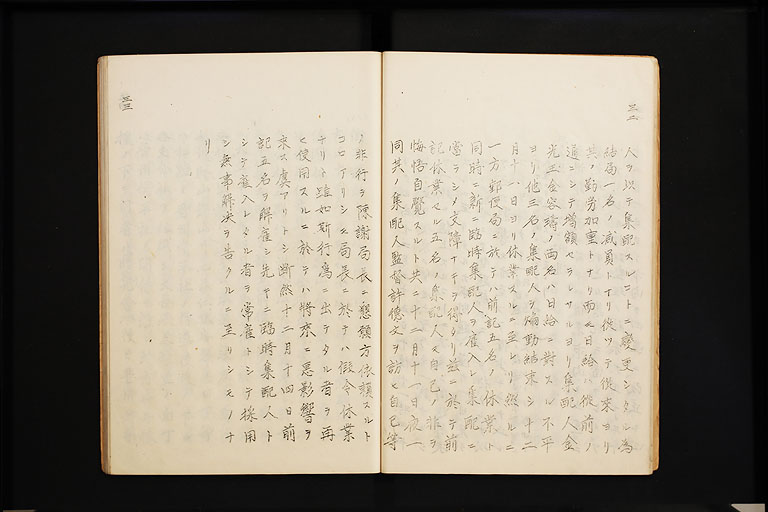 三二
人ヲ以テ集配スルコトニ變更シタル為
結局一名ノ減員トナリ従ツテ従来ヨリ
其ノ勤労加重トナリ而モ日給ハ従前ノ
通ニシテ増額セラレサルヨリ集配人金
光玉金容燾ノ両名ハ日給ニ對スル不平
ヨリ他三名ノ集配人ヲ煽動結束シ十二
月十一日ヨリ休業スルニ至レリ然ルニ
一方郵便局ニ於テハ前記五名ノ休業ト
同時ニ新ニ臨時集配人ヲ雇入レ集配ニ
當ラシメ支障ナキヲ得タリ茲ニ於テ前
記休業セル五名ノ集配人モ自己ノ非ヲ
悔悟自覺スルト共ニ十二月十一日夜一
同其ノ集配人監督許德文ヲ訪ヒ自己等
三三
ノ非行ヲ陳謝局長ニ懇願方依頼スルト
コロアリシモ局長ニ於テハ假令休業
ナリト雖如斯行為ニ出テタル者ヲ再
ヒ使用スルニ於テハ将来ニ悪影響ヲ
来ス虞アリトシ断然十二月十四日前
記五名ヲ解雇シ先キニ臨時集配人ト
シテ雇入レタル者ヲ常雇トシテ採用
シ無事解決ヲ告クルニ至リシモノナ
リ